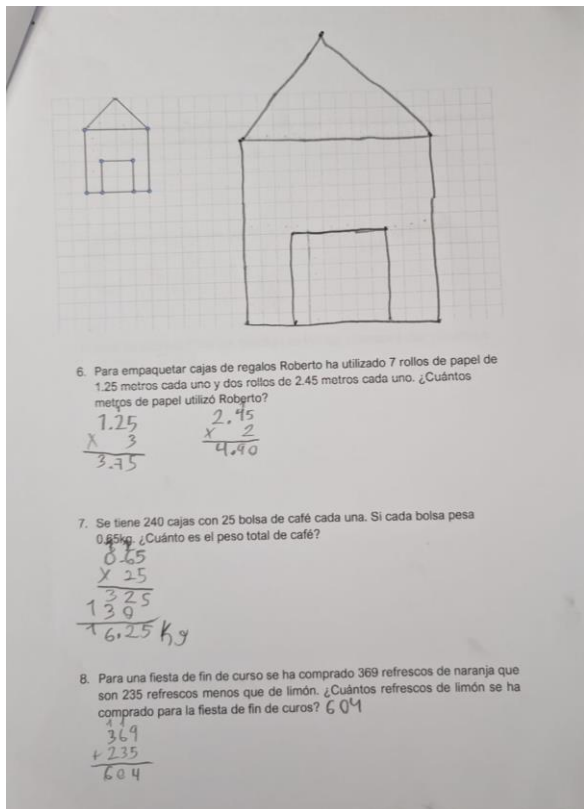 6. Para empaquetar cajas de regalos Roberto ha utilizado 7 rollos de papel de
1.25 metros cada uno y dos rollos de 2.45 metros cada uno. ¿Cuántos
metros de papel utilizó Roberto?
1.25
x 3
3.75
2.45
x 2
4.90
7. Se tiene 240 cajas con 25 bolsa de café cada una. Si cada bolsa pesa
0.65kg. ¿Cuánto es el peso total de café?
0.65
x 25
325
130
16.25 Kg
8. Para una fiesta de fin de curso se ha comprado 369 refrescos de naranja que
son 235 refrescos menos que de limón. ¿Cuántos refrescos de limón se ha
comprado para la fiesta de fin de curos? 604
1 1
369
+ 235
604